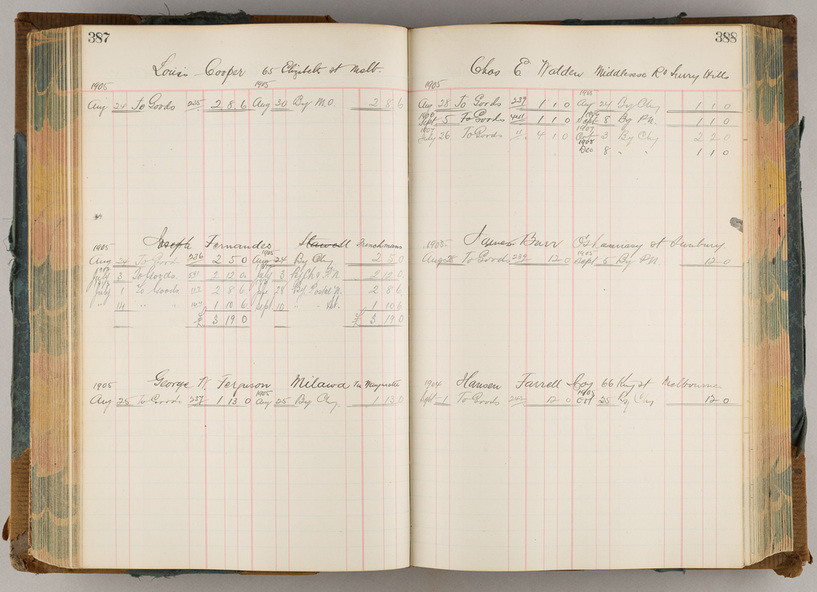 387
Louis Cooper 65 Elizabeth st Melb.
1905 1905
Aug 24 To Goods 235 2 8 6 Aug 30 By M.O. 2 8 6
Joseph Fernandes
1905 1905
Aug 24 To Goods 236 2 5 0 Aug 24 By Chq 2 5 0
July 3 To Goods July 3
July 1 To Goods 2 8 6 28 By Postal N. 2 8 6
14 " " 1 10 6 Sept 10 " " 1 10 6
3 19 0 3 19 0
1905 George W Ferguson Milawa
1905
Aug 25 To Goods 237 1 13 0 Aug 25 By Chq 1 13 0
388
Chas E Walden Middlesex Rd Surry Hills
1905 1905
Aug 28 To Goods 237 1 1 0 Aug 24 By Chq 1 1 0
Sept 5 To Goods 441 1 1 0 Sept 8 By P.N. 1 1 0
1907 1907
26 To Goods 4 1 0 Oct 3 By Chq 2 2 0
1908
Dec 8 " " 1 1 0
1905 James Barr st Sunbury
1905
Aug 28 To Goods 12 0 Sept 5 By P.N. 12 0
1904 Hansen Farrell Coy 66 King st Melbourne
Sept 1 To Goods 242 12 0 Oct 25 By Chq 12 0